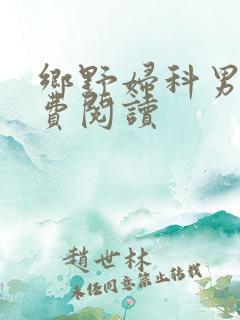 鄉野婦科男
費閱讀
趙世林
未經同意禁止轉載